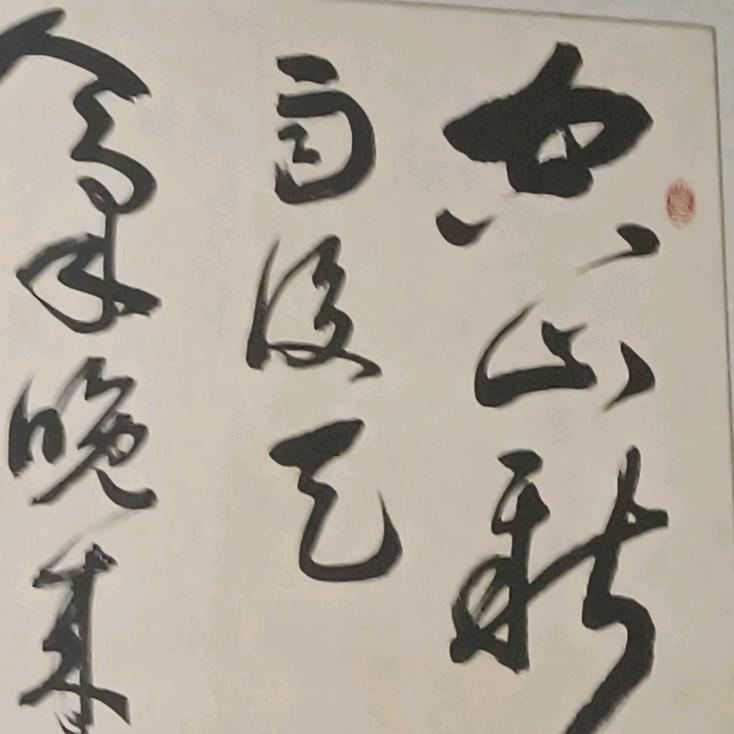 空山新
雨後天
氣晚來